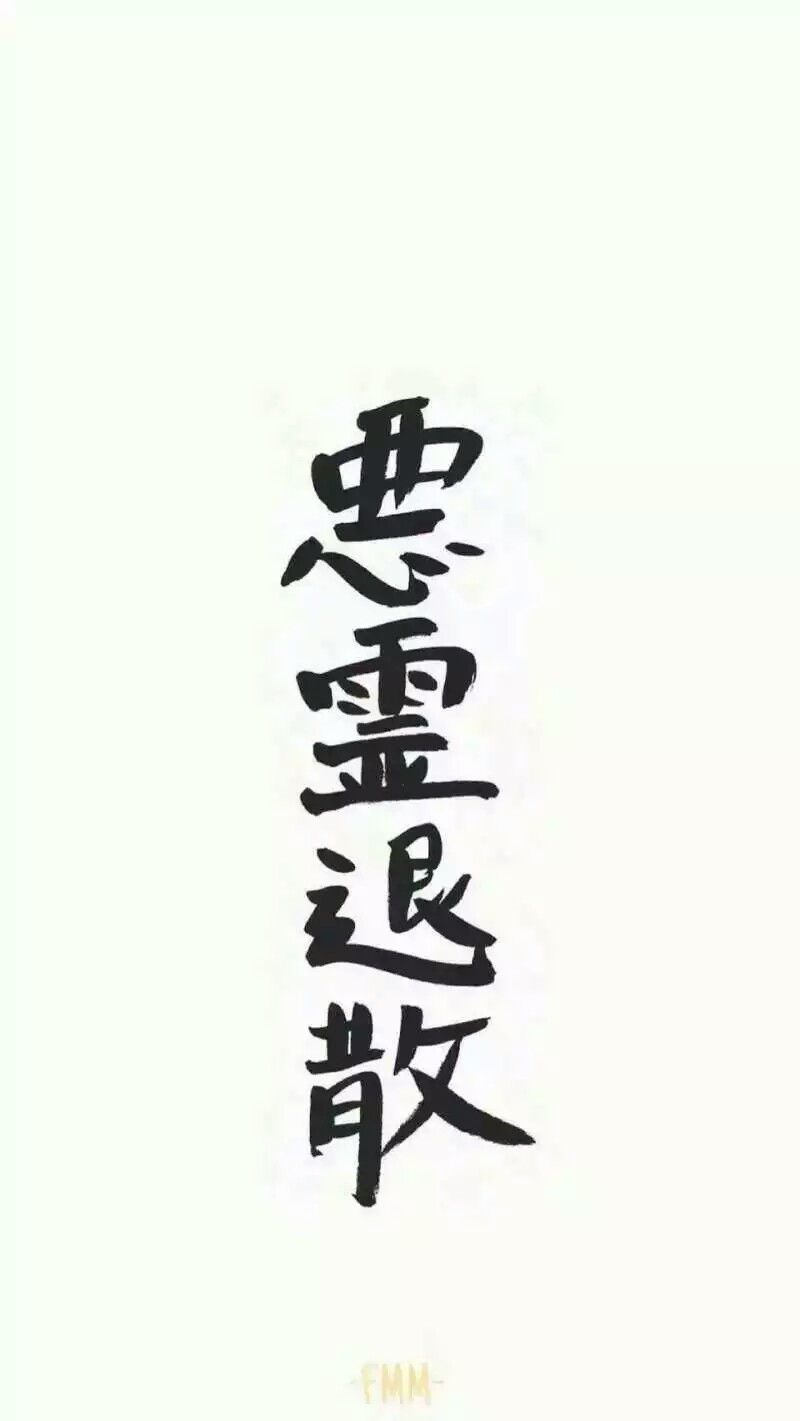 悪霊退散
-FMM-